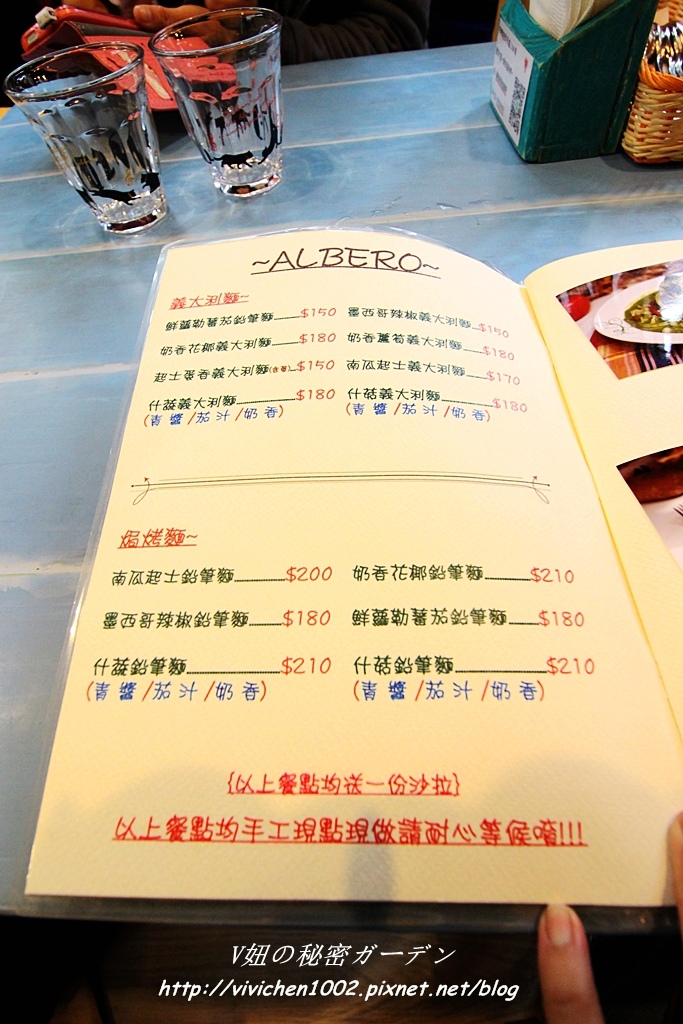 ~ALBERO~
義大利麵~
鮮蘿勒蕃茄鉛筆麵 $150 墨西哥辣椒義大利麵 $150
奶香花椰義大利麵 $180 奶香蘆筍義大利麵 $180
起士蛋香義大利麵 $150 南瓜起士義大利麵 $170
什蔬義大利麵 $180 什菇義大利麵 $180
(青醬/茄汁/奶香) (青醬/茄汁/奶香)
焗烤麵~
南瓜起士鉛筆麵 $200 奶香花椰鉛筆麵 $210
墨西哥辣椒鉛筆麵 $180 鮮蘿勒蕃茄鉛筆麵 $180
什蔬鉛筆麵 $210 什菇鉛筆麵 $210
(青醬/茄汁/奶香) (青醬/茄汁/奶香)
{以上餐點均送一份沙拉}
以上餐點均手工現點現做請耐心等候唷!!!
V妞の秘密ガーデン
http://vivichen1002.pixnet.net/blog